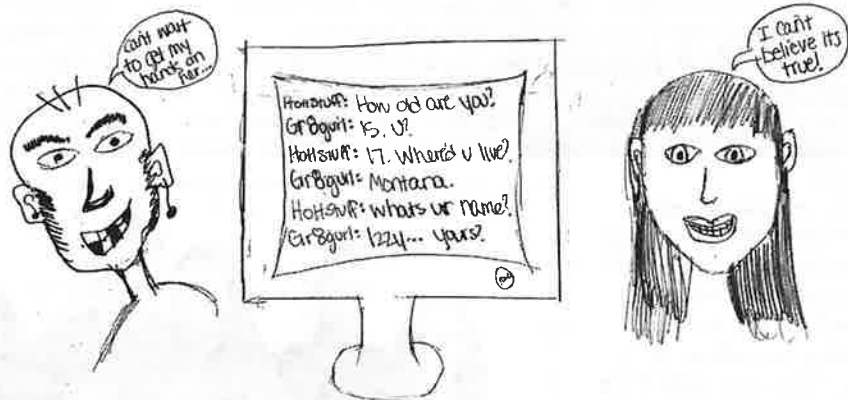 can't wait
to get my
hands on
her...
HoHStuff: How old are you?
Gr8gurl: 15. U?
HoHStuff: 17. Where'd u live?
Gr8gurl: Montana.
HoHStuff: whats ur name?
Gr8gurl: Izzy... yours?
I can't
believe its
true!